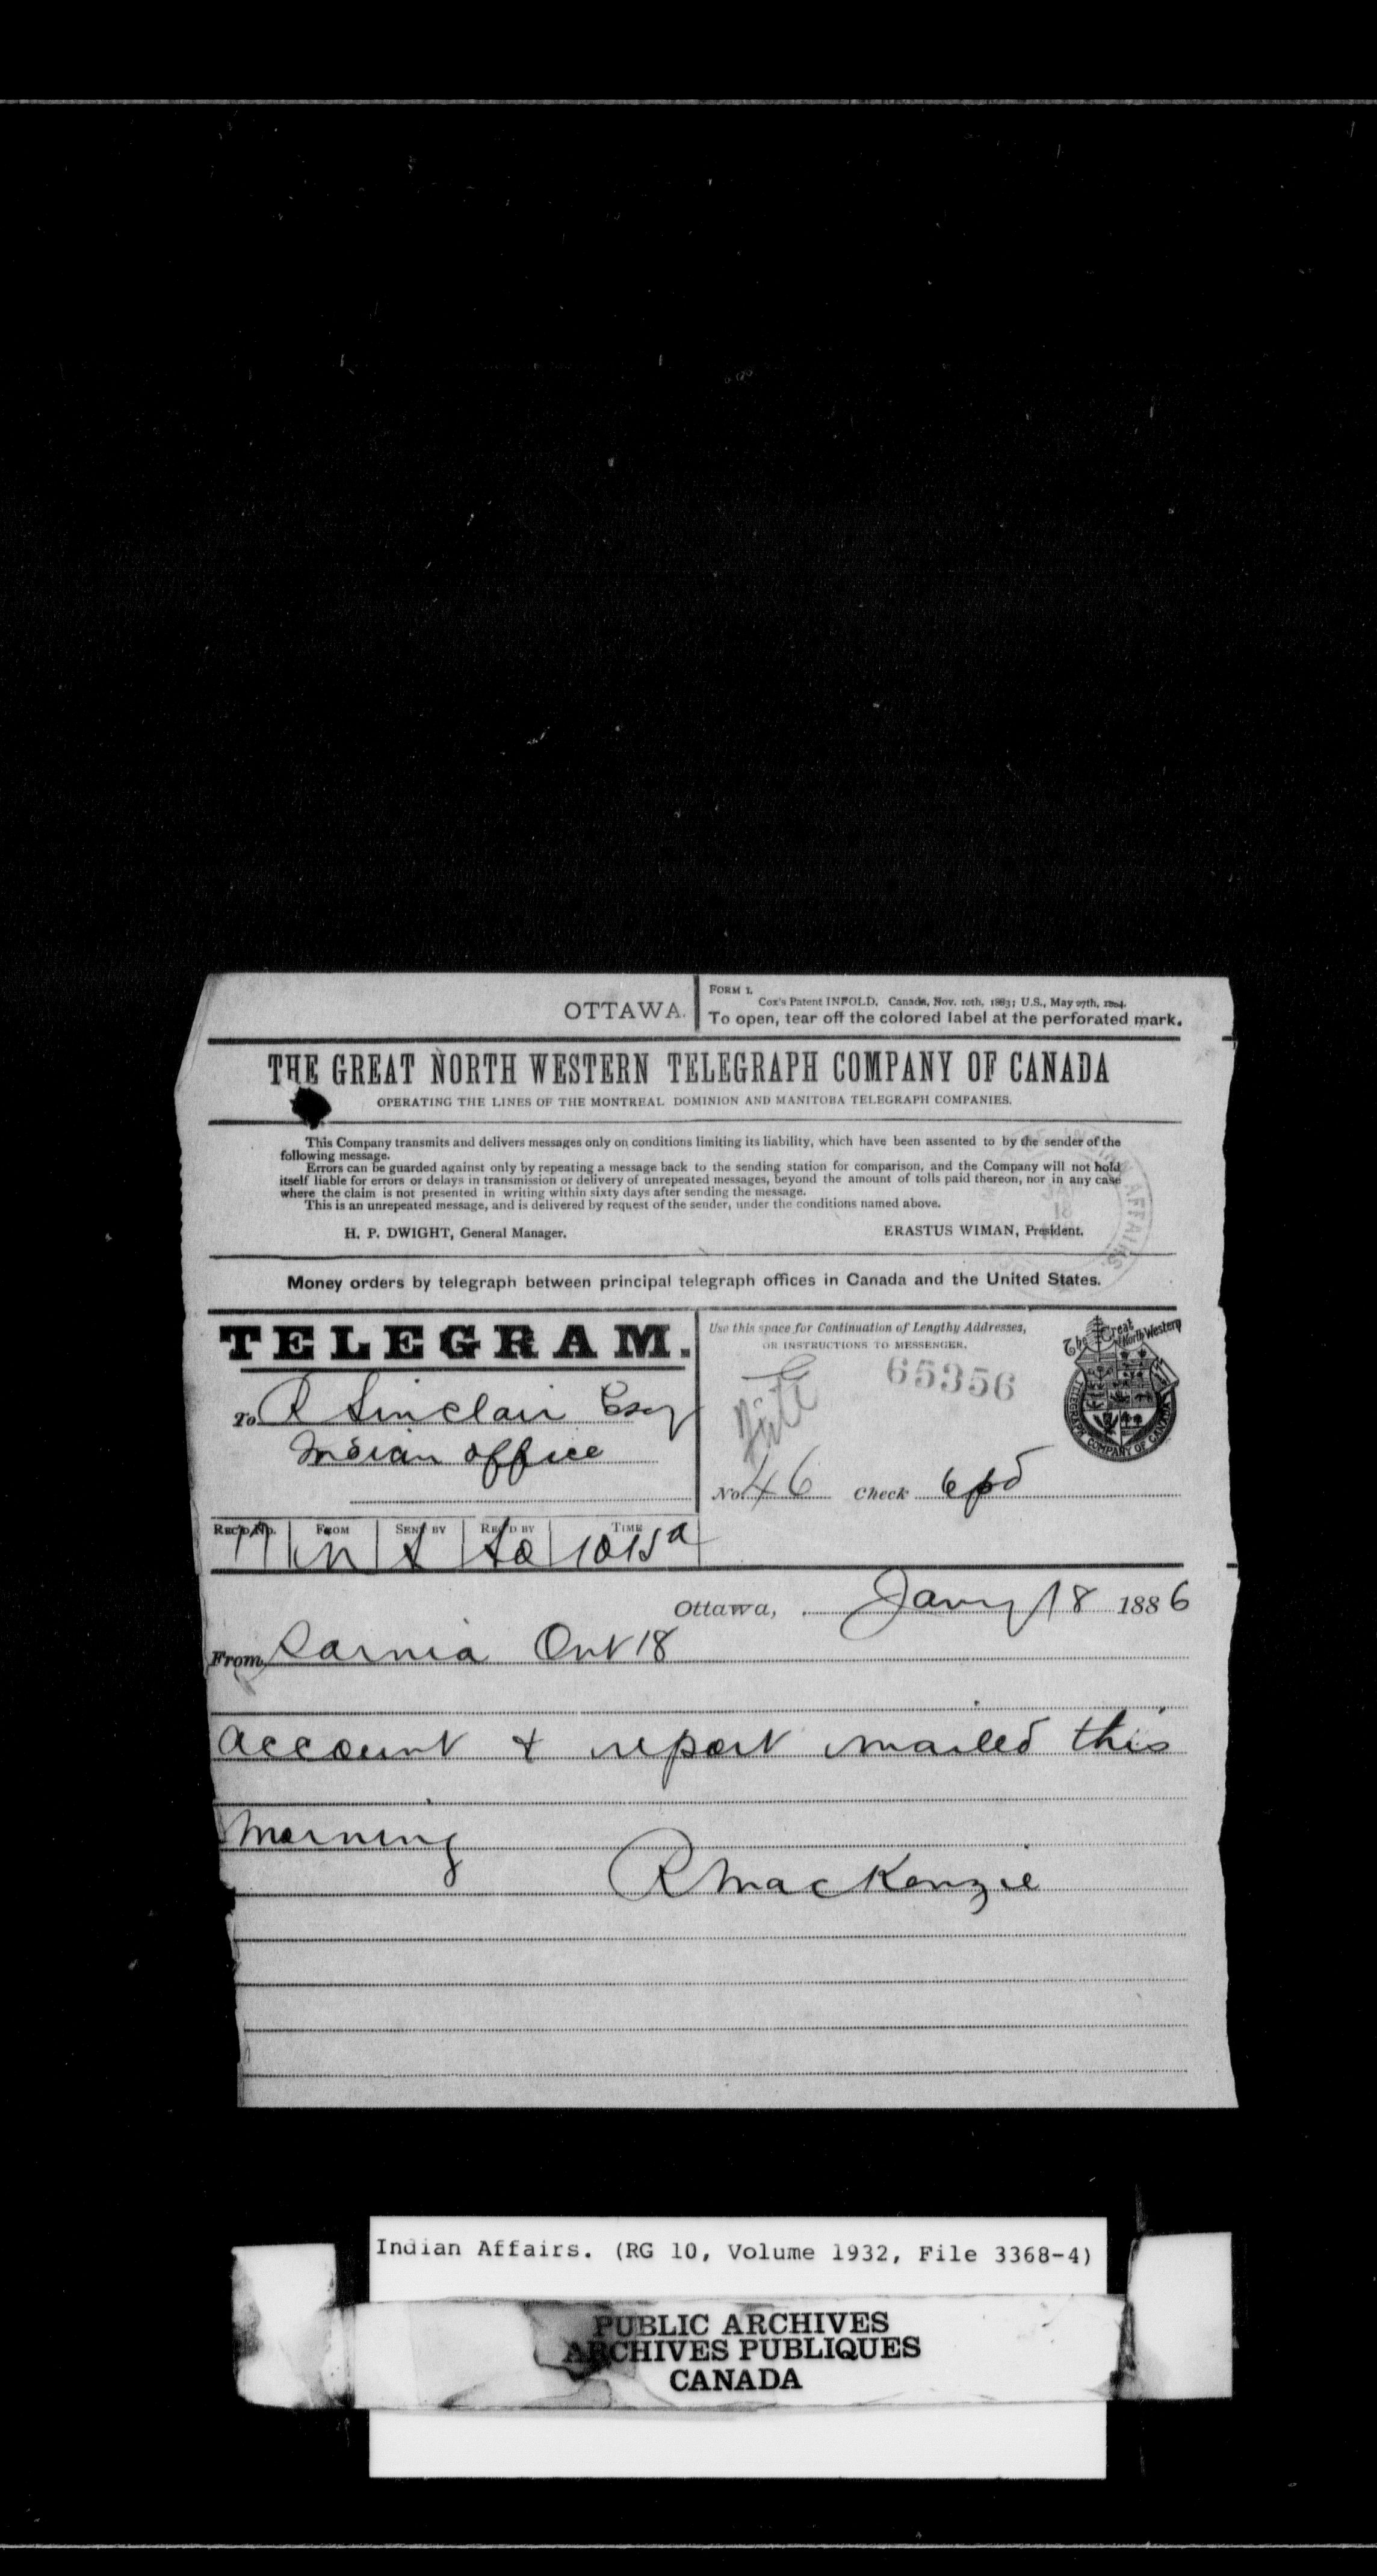 OTTAWA.
FORM 1.
Cox's Patent INFOLD. Canada, Nov. 10th, 1883; U.S., May 27th, 1884.
To open, tear off the colored label at the perforated mark.
THE GREAT NORTH WESTERN TELEGRAPH COMPANY OF CANADA
OPERATING THE LINES OF THE MONTREAL DOMINION AND MANITOBA TELEGRAPH COMPANIES.
This Company transmits and delivers messages only on conditions limiting its liability, which have been assented to by the sender of the
following message.
Errors can be guarded against only by repeating a message back to the sending station for comparison, and the Company will not hold
itself liable for errors or delays in transmission or delivery of unrepeated messages, beyond the amount of tolls paid thereon, nor in any case
where the claim is not presented in writing within sixty days after sending the message.
This is an unrepeated message, and is delivered by request of the sender, under the conditions named above.
H. P. DWIGHT, General Manager.
ERASTUS WIMAN, President.
AFFAIRS.
18
Money orders by telegraph between principal telegraph offices in Canada and the United States.
TELEGRAM.
Use this space for Continuation of Lengthy Addresses,
OR INSTRUCTIONS TO MESSENGER.
65356
The Great North Western
TELEGRAPH COMPANY OF CANADA
To R Sinclair Esq
Indian office
No. 46 Check 6 pd
REC'D NO. FROM SENT BY REC'D BY TIME
1015a
Ottawa, Jany 18 1886
From Sarnia Ont 18
account & report mailed this
morning
R MacKenzie
Indian Affairs. (RG 10, Volume 1932, File 3368-4)
PUBLIC ARCHIVES
ARCHIVES PUBLIQUES
CANADA